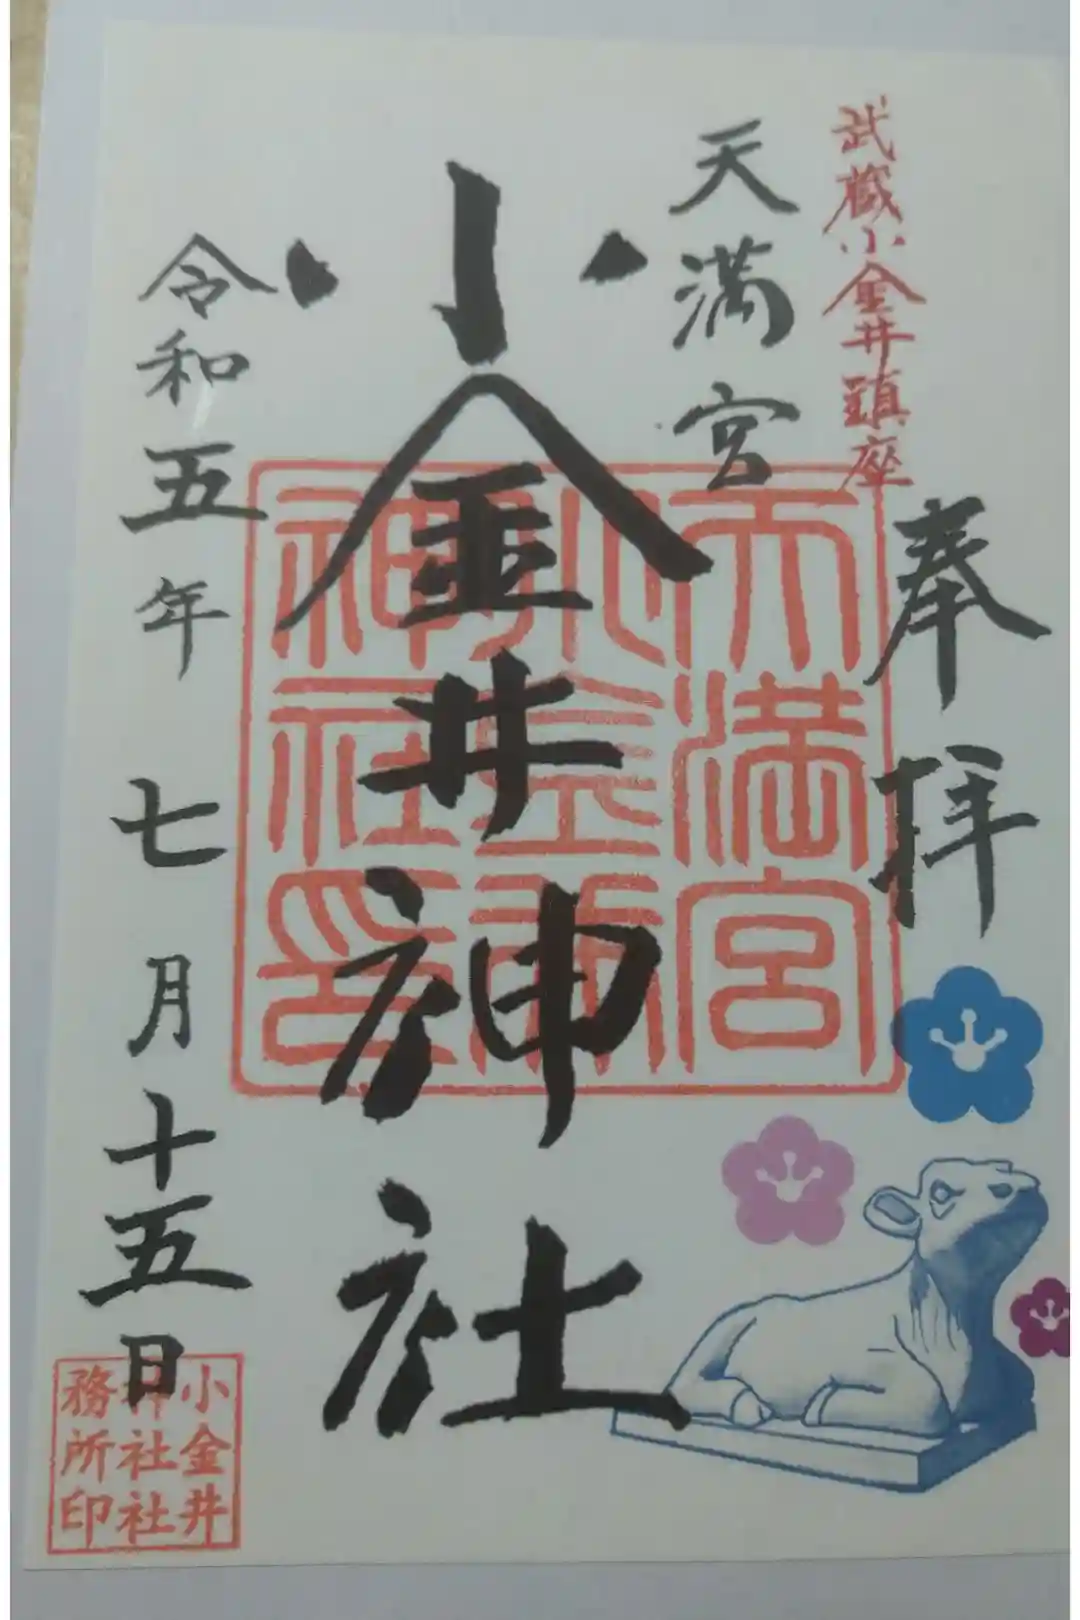 武蔵小金井鎮座
奉拝
天満宮
小金井神社
令和五年 七月十五日
天満宮
小金井
神社印
小金井
神社社
務所印